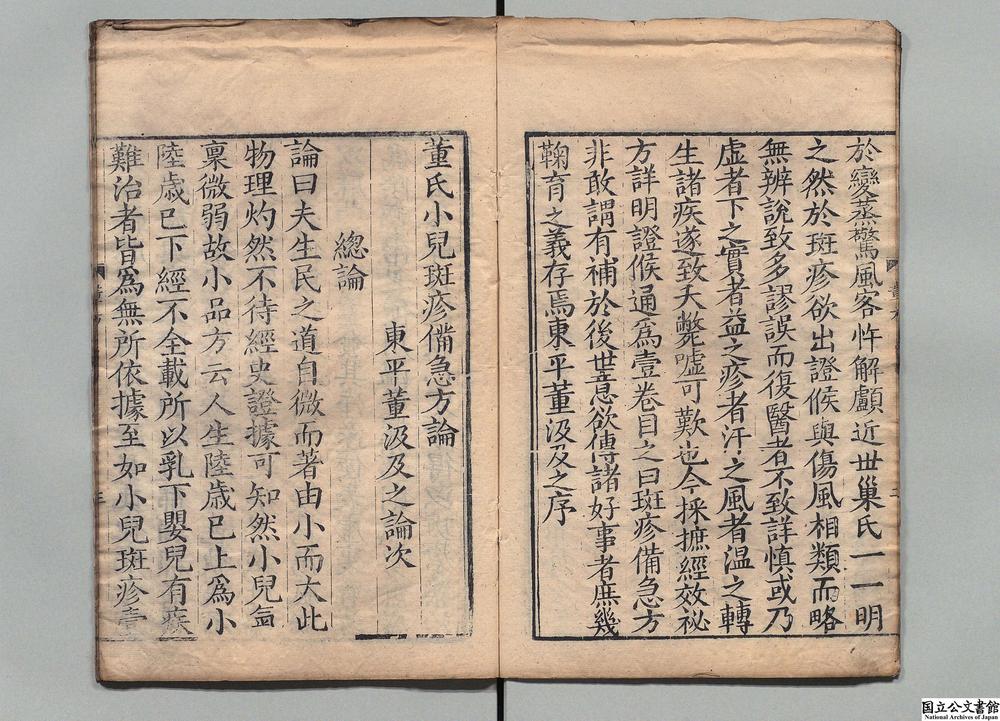 於變蒸驚風客忤解顱近世巢氏一一明
之然於斑疹欲出證候與傷風相類而略
無辨說致多謬誤而復醫者不致詳慎或乃
虛者下之實者益之疹者汗之風者溫之轉
生諸疾遂致夭斃嘘可歎也今採摭經效祕
方詳明證候通爲壹卷目之曰斑疹備急方
非敢謂有補於後世意欲傳諸好事者庶幾
鞠育之義存焉東平董汲及之序
董氏小兒斑疹備急方論
東平董汲及之論次
總論
論曰夫生民之道自微而著由小而大此
物理灼然不待經史證據可知然小兒氣
稟微弱故小品方云人生陸歲已上爲小
陸歲已下經不全載所以乳下嬰兒有疾
難治者皆爲無所依據至如小兒斑疹壹
国立公文書館
National Archives of Japan